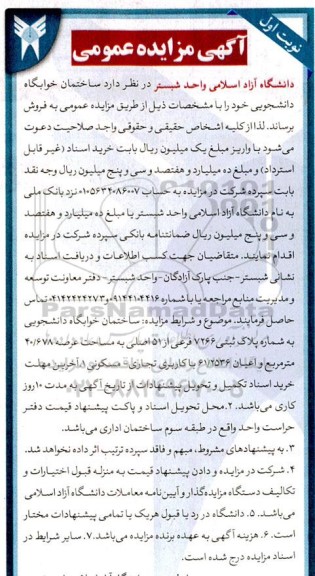 نوبت اول
آگهی مزایده عمومی
دانشگاه آزاد اسلامی واحد شبستر در نظر دارد ساختمان خوابگاه
دانشجویی خود را با مشخصات ذیل از طریق مزایده عمومی به فروش
برساند. لذا از کلیه اشخاص حقیقی و حقوقی واجد صلاحیت دعوت
می‌شود با واریز مبلغ یک میلیون ریال بابت خرید اسناد (غیر قابل
استرداد) و مبلغ ده میلیارد و هفتصد و سی و پنج میلیون ریال وجه نقد
بابت سپرده شرکت در مزایده به حساب ۰۱۰۵۶۳۴۰۸۶۰۰۷ نزد بانک ملی
به نام دانشگاه آزاد اسلامی واحد شبستر یا مبلغ ده میلیارد و هفتصد
و سی و پنج میلیون ریال ضمانتنامه بانکی سپرده شرکت در مزایده
اقدام نمایند. متقاضیان جهت کسب اطلاعات و دریافت اسناد به
نشانی شبستر-جنب پارک آزادگان-واحد شبستر- دفتر معاونت توسعه
و مدیریت منابع مراجعه یا با شماره ۰۹۱۴۴۱۰۴۴۱۶ و ۰۴۱۴۲۴۲۲۲۷۳ تماس
حاصل فرمایند. موضوع و شرایط مزایده: ساختمان خوابگاه دانشجویی
به شماره پلاک ثبتی ۷۲۶۶ فرعی از ۵۱ اصلی به مساحت عرصه ۴۰/۶۷۸
مترمربع و اعیان ۶۱۱۲۵۳۶ با کاربری تجاری- مسکونی ۱. آخرین مهلت
خرید اسناد تکمیل و تحویل پیشنهادات از تاریخ آگهی به مدت ۱۰ روز
کاری می‌باشد. ۲. محل تحویل اسناد و پاکت پیشنهاد قیمت دفتر
حراست واحد واقع در طبقه سوم ساختمان اداری می‌باشد.
۳. به پیشنهادهای مشروط، مبهم و فاقد سپرده ترتیب اثر داده نخواهد شد.
۴. شرکت در مزایده و دادن پیشنهاد قیمت به منزله قبول اختیارات و
تکالیف دستگاه مزایده‌گذار و آیین‌نامه معاملات دانشگاه آزاد اسلامی
می‌باشد. ۵. دانشگاه در رد یا قبول هریک یا تمامی پیشنهادات مختار
است. ۶. هزینه آگهی به عهده برنده مزایده می‌باشد. ۷. سایر شرایط در
اسناد مزایده درج شده است.
ParsNamadData